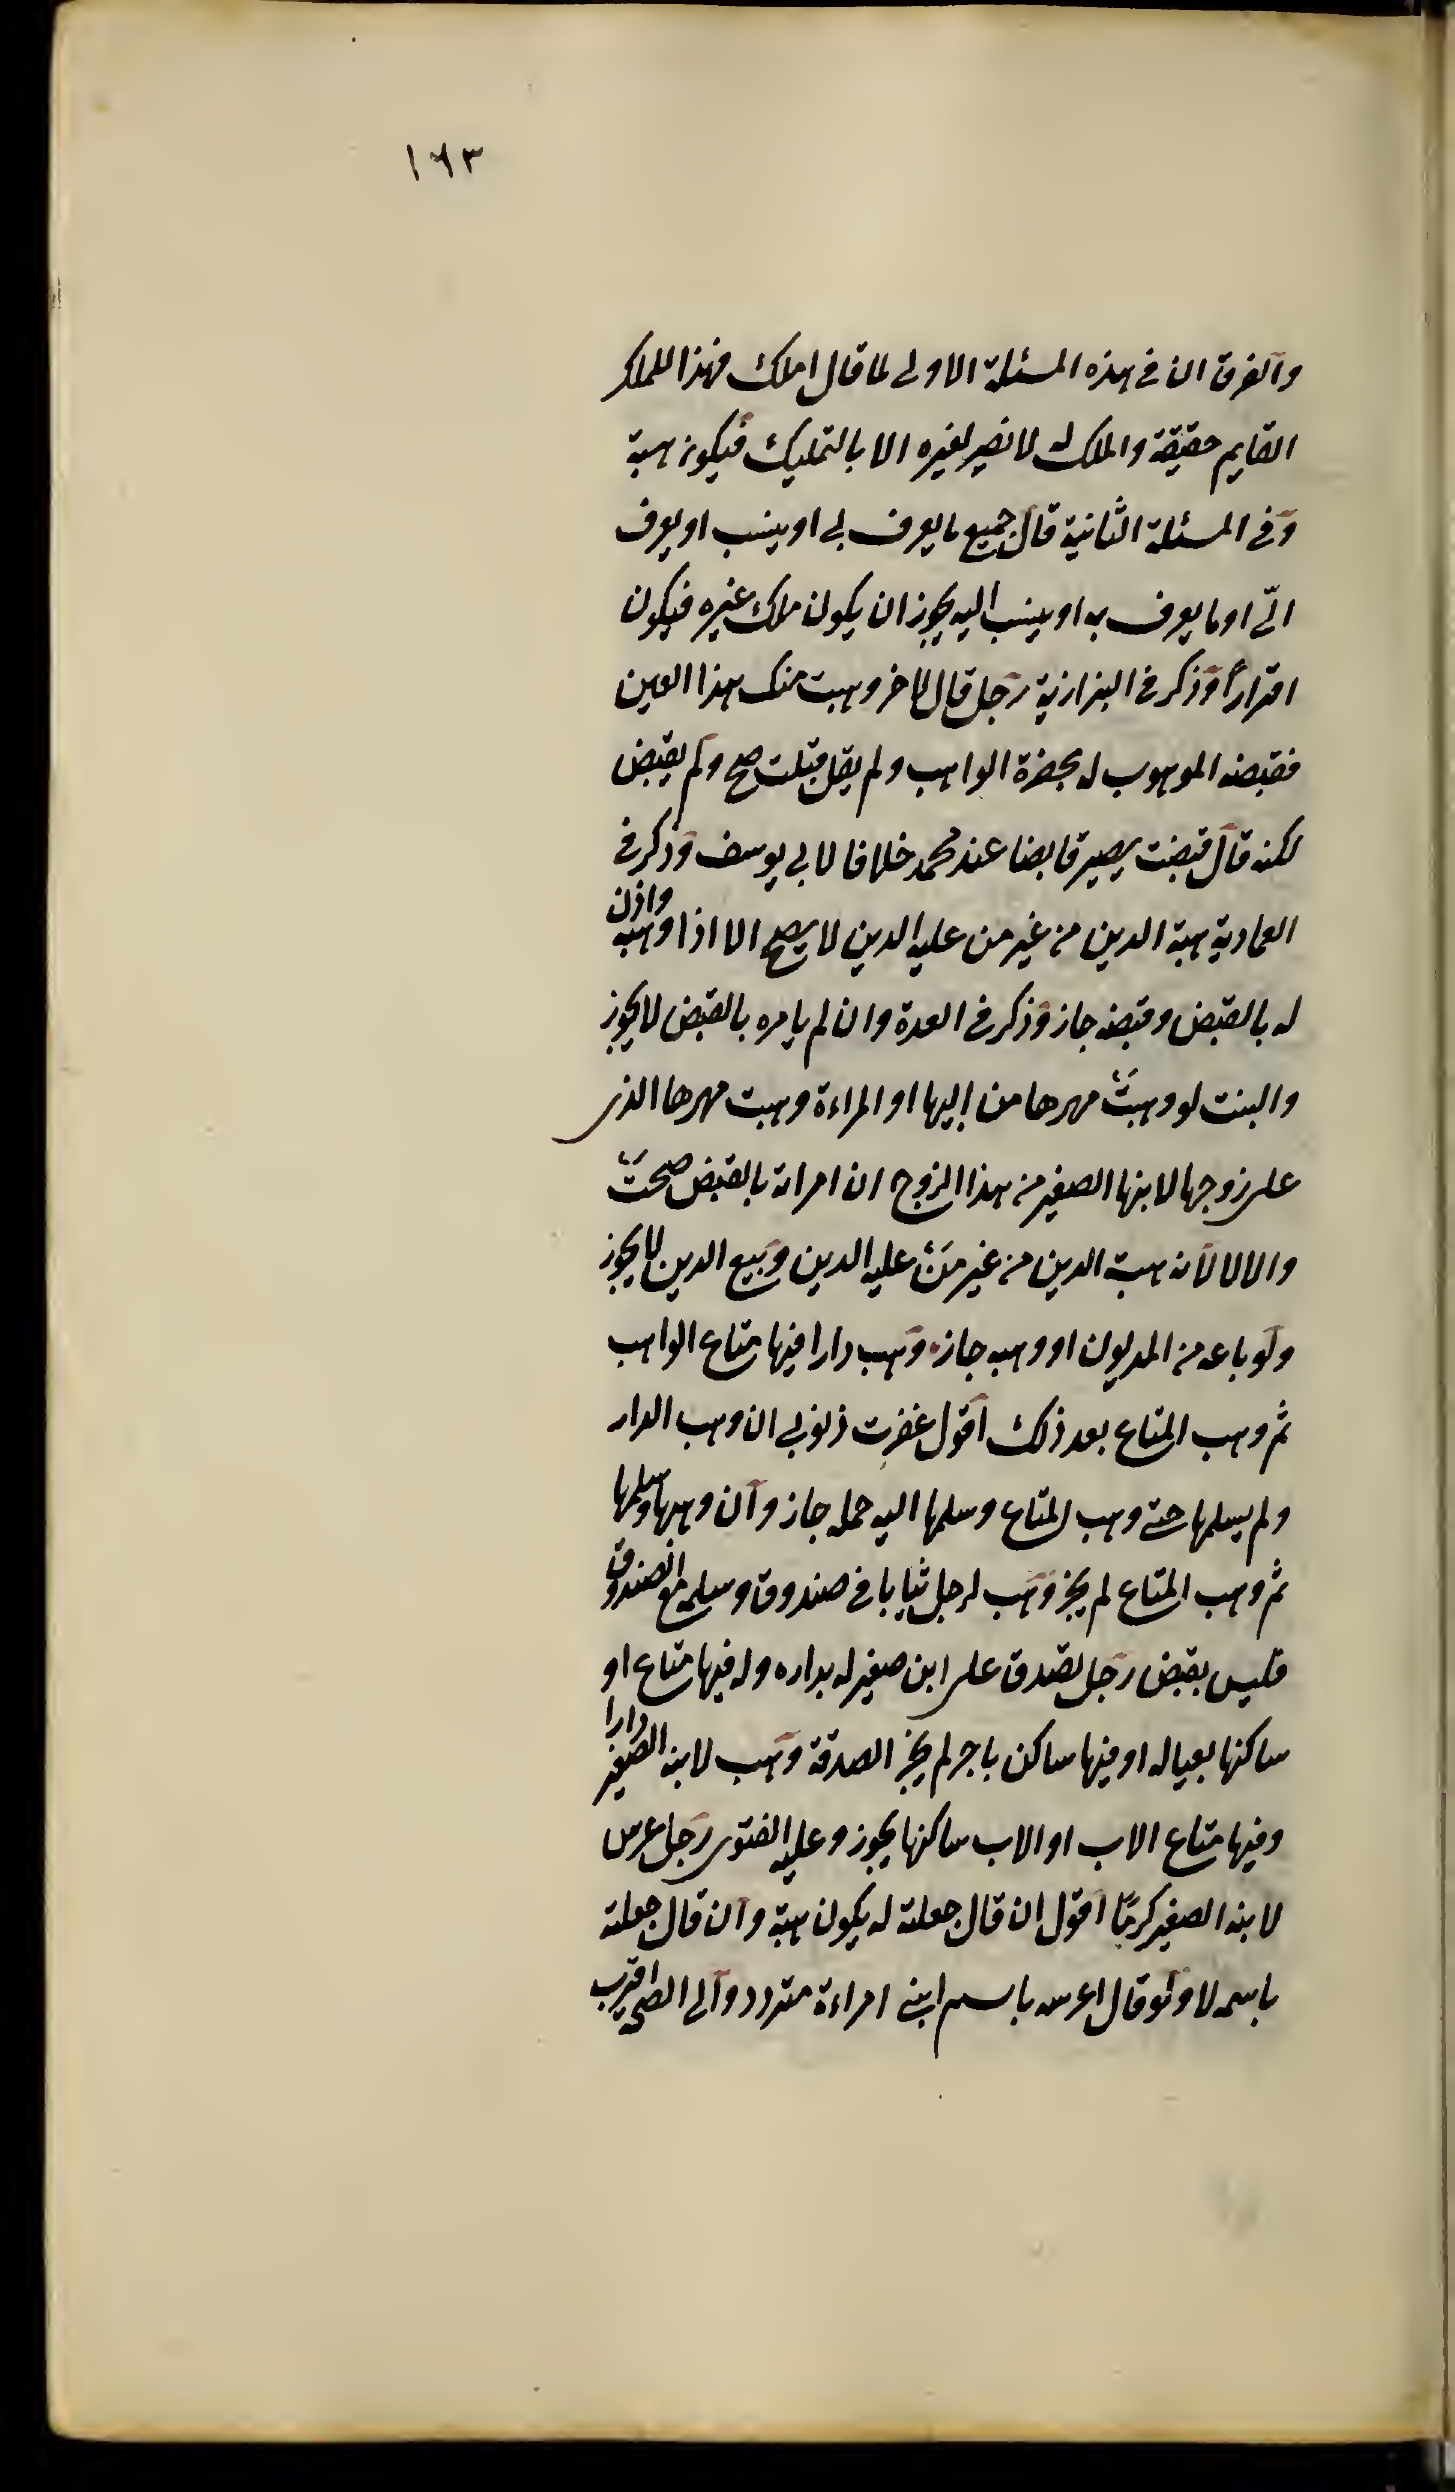 ١٦٣
والفرق ان في هذه المسئلة الاولى لما قال املك فهذا للملك
القايم حقيقة والملك له لا تصير لغيره الا بالتمليك فيكون هبة
وفي المسئلة الثانية قال جميع ما يعرف لي او ينسب او يعرف
الىّ او ما يعرف به او ينسب اليه يجوز ان يكون ملك غيره فيكون
اقراراً وذكر في البزازية رجل قال لاخر وهبت منك هذا العين
فقبضه الموهوب له بحضرة الواهب ولم يقل قبلت صح ولم يقبض
لكنه قال قبضت يصير قابضا عند محمد خلافا لابي يوسف وذكر في
العمادية هبة الدين من غير من عليه الدين لا يصح الا اذا وهبه واذن
له بالقبض وقبضه جاز وذكر في العدة وان لم يامره بالقبض لا يجوز
والبنت لو وهبتْ مهرها من ابيها او المراءة وهبت مهرها الذى
على زوجها لابنها الصغير من هذا الزوج ان امرته بالقبض صحتْ
والا لا لأنه هبة الدين من غير مَنْ عليه الدين وبيع الدين لا يجوز
ولو باعه من المديون او وهبه جاز وهب دارا فيها متاع الواهب
ثم وهب المتاع بعد ذلك اقول غفرت ذنوبي ان وهب الدار
ولم يسلمها حتى وهب المتاع وسلمها اليه جملة جاز وان وهبها وسلمها
ثم وهب المتاع لم يجز وهب لرجل ثيابا في صندوق وسلمه مع الصندوق
فليس بقبض رجل تصدق على ابن صغير له بداره وله فيها متاع او
ساكنها بعياله او فيها ساكن باجر لم يجز الصدقة وهب لابنه الصغير دارا
وفيها متاع الاب او الاب ساكنها يجوز وعليه الفتوى رجل غرس
لابنه الصغير كرمًا اقول ان قال جعلته له يكون هبة وان قال جعلته
باسمه لا ولو قال اغرسه باسم ابني امراءة متردد والى الصحة اقرب